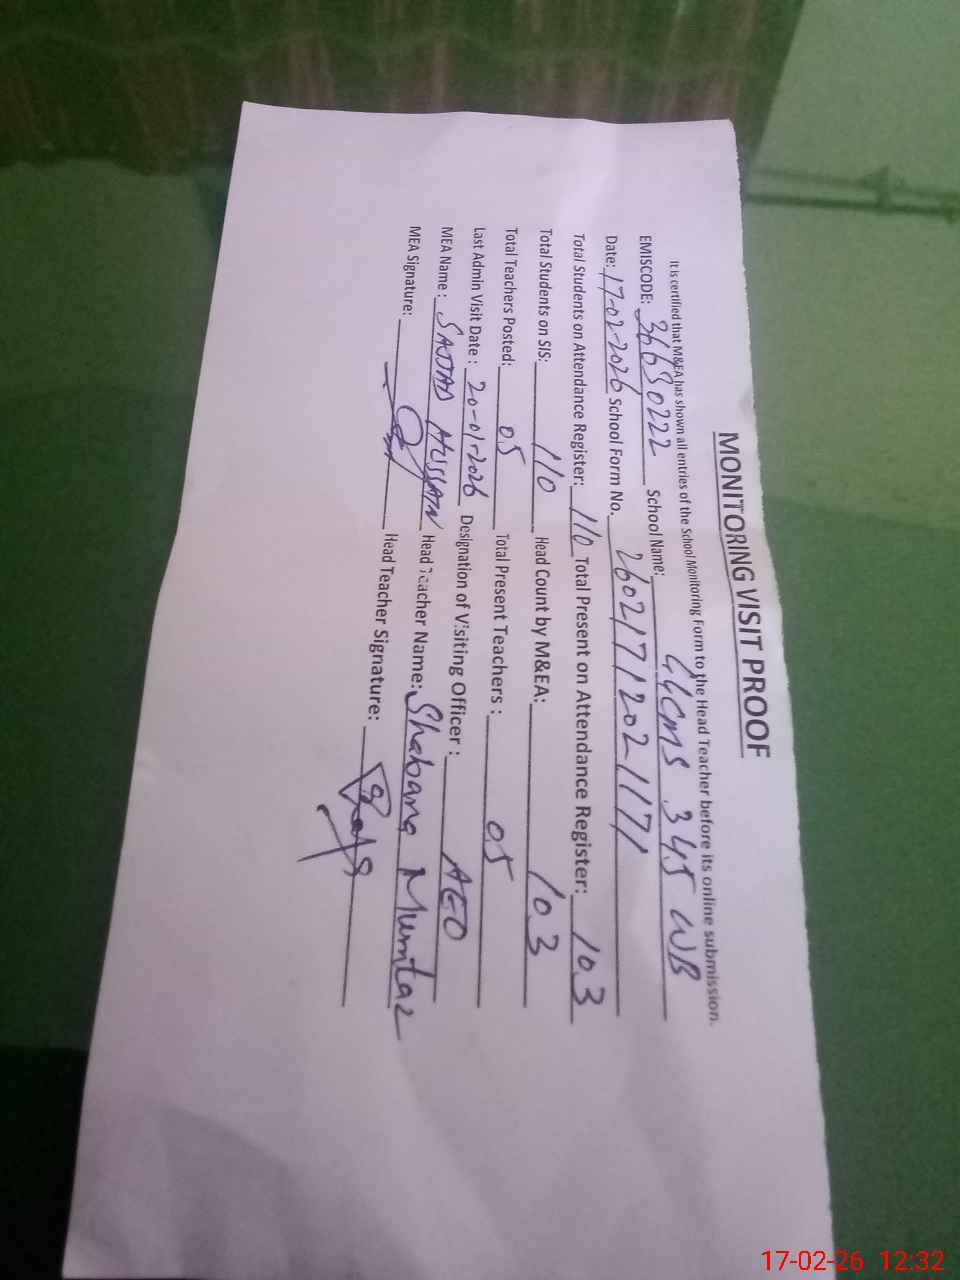 MONITORING VISIT PROOF
It is certified that M&EA has shown all entries of the School Monitoring Form to the Head Teacher before its online submission.
EMISCODE: 36630222 School Name: GCMS 345 WB
Date: 17-02-2026 School Form No. 26021712021171
Total Students on Attendance Register: 110 Total Present on Attendance Register: 103
Total Students on SIS: 110 Head Count by M&EA: 103
Total Teachers Posted: 05 Total Present Teachers: 05
Last Admin Visit Date: 20-01-2026 Designation of Visiting Officer: AEO
MEA Name: SAJJAD HUSSAIN Head Teacher Name: Shabana Mumtaz
MEA Signature: Head Teacher Signature:
17-02-26 12:32